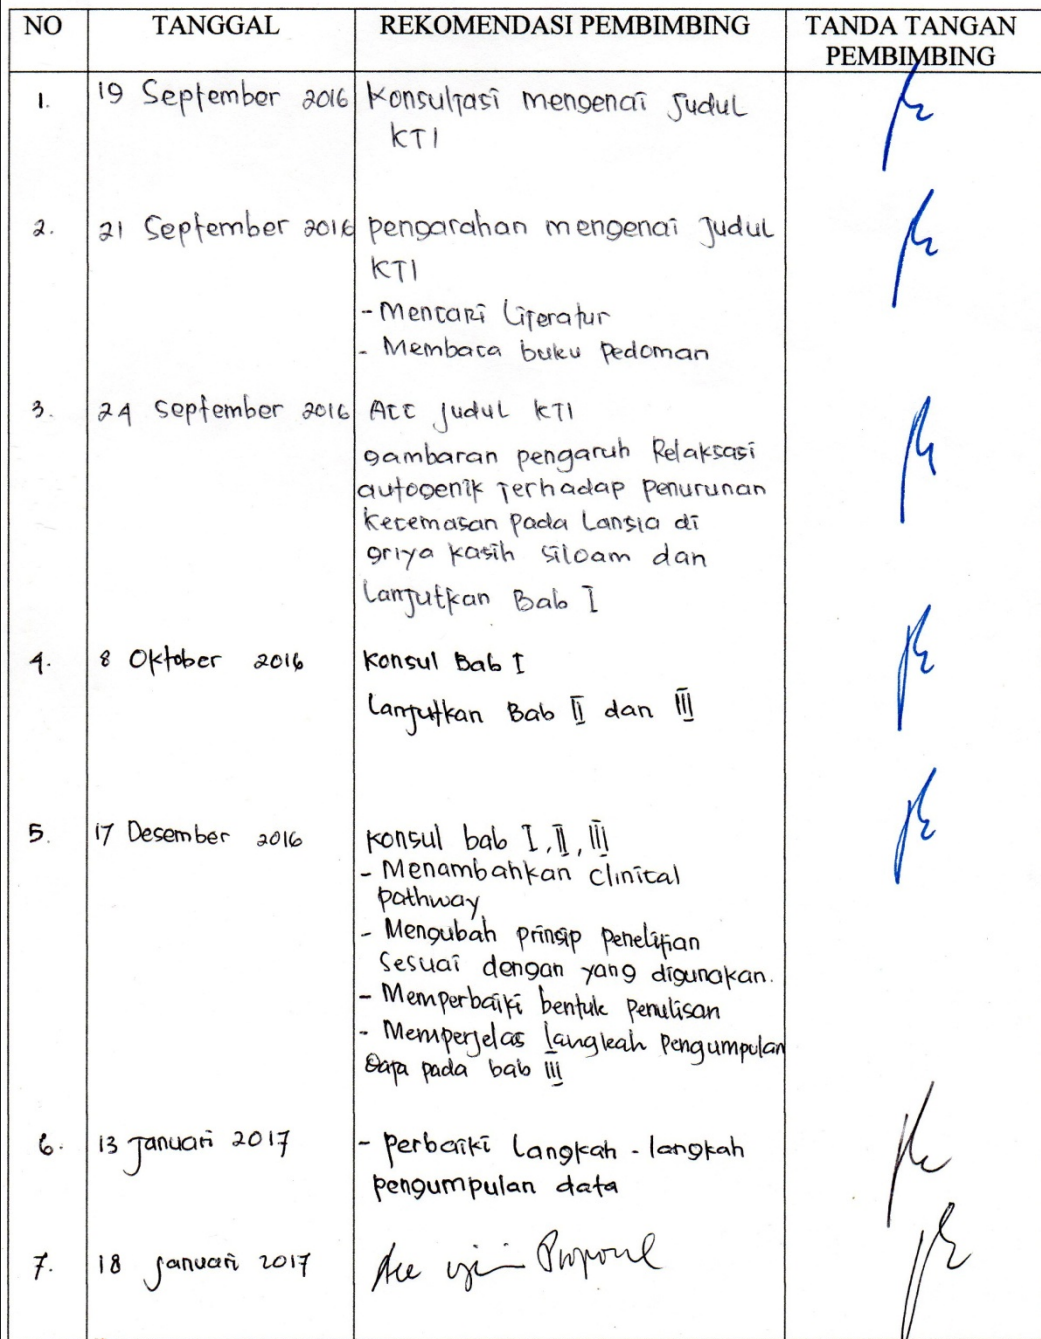 NO TANGGAL REKOMENDASI PEMBIMBING TANDA TANGAN
PEMBIMBING
1. 19 September 2016 Konsultasi mengenai Judul
KTI
2. 21 September 2016 pengarahan mengenai Judul
KTI
- Mencari Literatur
- Membaca buku Pedoman
3. 24 September 2016 Acc Judul KTI
gambaran pengaruh Relaksasi
autogenik Terhadap Penurunan
Kecemasan Pada Lansia di
griya kasih Siloam dan
Lanjutkan Bab I
4. 8 Oktober 2016 Konsul Bab I
Lanjutkan Bab II dan III
5. 17 Desember 2016 Konsul bab I, II, III
- Menambahkan Clinical
pathway
- Mengubah prinsip Penelitian
Sesuai dengan yang digunakan.
- Memperbaiki bentuk Penulisan
- Memperjelas langkah Pengumpulan
Data pada bab III
6. 13 Januari 2017 - Perbaiki Langkah - langkah
pengumpulan data
7. 18 Januari 2017 Acc uji Proposal